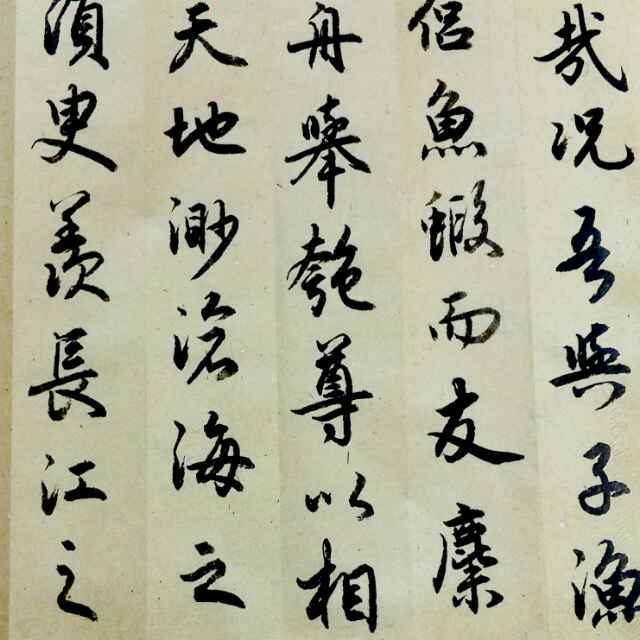 哉況吾與子漁
侶魚蝦而友麋
舟舉匏尊以相
天地渺滄海之
須臾羨長江之